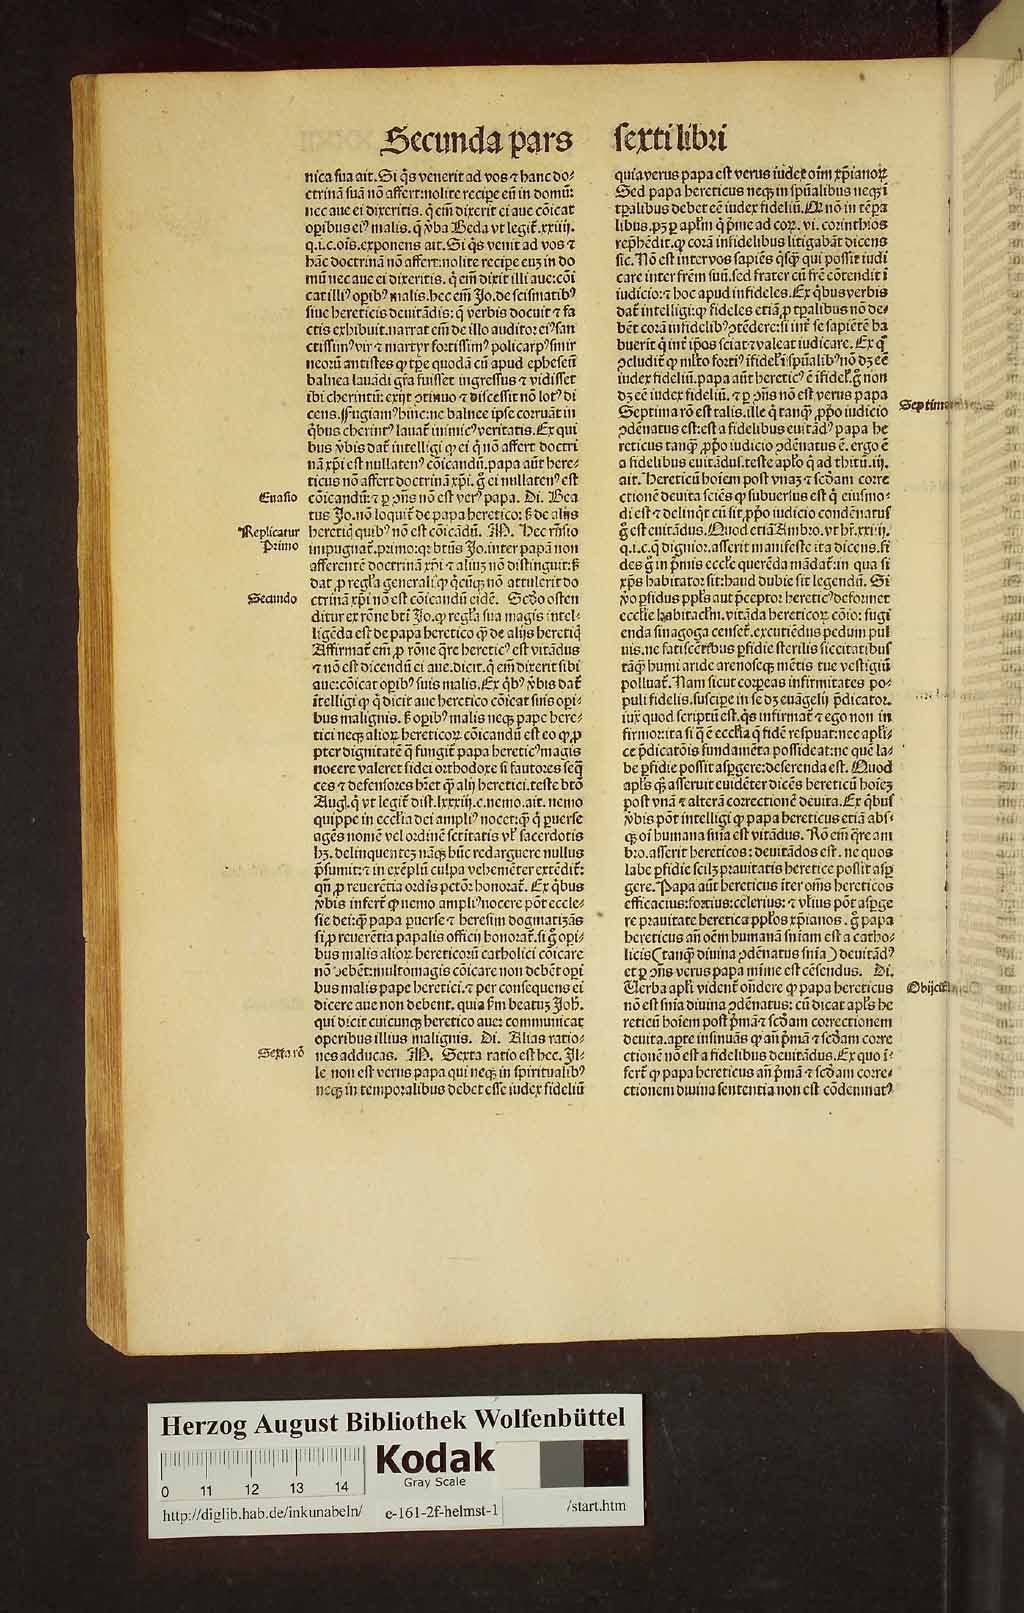 Secunda pars sexti libri
nica sua ait. Si q̃s venerit ad vos ⁊ hanc do⸗
ctrinã suã nõ affert: nolite recipe eũ in domũ:
nec aue ei dixeritis. q̃ em̃ dixerit ei aue cõicat
oꝑibus eiꝰ malis. q̃ v̾ba Beda vt legit᷑ .xxiiij.
q.i.c.oĩs. exponens ait. Si q̃s venit ad vos ⁊
hãc doctrinã nõ affert: nolite recipe euʒ in do
mũ nec aue ei dixeritis. q̃ em̃ dixit illi aue: cõi
cat illiꝰ oꝑibꝰ malis. hec em̃ Jo. de scismatibꝰ
siue hereticis deuitãdis: q̃ verbis docuit ⁊ fa
ctis exhibuit. narrat em̃ de illo auditor eiꝰ san
ctissimꝰ vir ⁊ martyr fortissimꝰ policarpꝰ smir
neorũ antistes ꝙ tp̃e quodã cũ apud ephesũm
balnea lauãdi gr̃a fuisset ingressus ⁊ vidisset
ibi cherintũ: exijt ꝯtinuo ⁊ discessit nõ lotꝰ di
cens. Fugiamꝰ hinc: ne balnee ipse corruãt in
q̃bus cherintꝰ lauat᷑ inimicꝰ veritatis. Ex qui
bus v̾bis dat᷑ intelligi ꝙ ei q̃ nõ affert doctri
nã xp̃i est nullatenꝰ cõicandũ. papa aũt here⸗
ticus nõ affert doctrinã xp̃i. g̊ ei nullatenꝰ est
cõicandũ: ⁊ ꝑ ꝯñs nõ est verꝰ papa. Di. Bea
tus Jo. nõ loquit᷑ de papa heretico: sꝫ de alijs
hereticꝭ quibꝰ nõ est cõicãdũ. M. Hec rñsio
impugnat᷑. primo: qꝛ btũs Jo. inter papã non
afferentẽ doctrinã xp̃i ⁊ aliuʒ nõ distinguit: sꝫ
dat ꝓ regl̃a generali ꝙ q̃cũqꝫ nõ attulerit do
ctrinã xp̃i nõ est cõicandũ eidẽ. Scd̾o osten
ditur ex rõne bti Jo. ꝙ regl̃a sua magis intel⸗
ligẽda est de papa heretico q̃ de alijs hereticꝭ
Affirmat em̃ ꝓ rõne q̃re hereticꝰ est vitãdus
⁊ nõ est dicendũ ei aue. dicit. q̃ em̃ dixerit sibi
aue: cõicat oꝑibꝰ suis malis. Ex q̃bꝰ v̾bis dat᷑
ĩtelligi ꝙ q̃ dicit aue heretico cõicat suis oꝑi⸗
bus malignis. sꝫ oꝑibꝰ malis neqꝫ pape here⸗
tici neqꝫ alioꝝ hereticoꝝ cõicandũ est eo ꝙ ꝓ
pter dignitatẽ q̃ fungit᷑ papa hereticꝰ magis
nocere valeret fidei orthodoxe si fautores seq̃
ces ⁊ defensores hẽt q̃ alij heretici. teste btõ
Aug. q̃ vt legit᷑ dist. lxxxiij. c. nemo. ait. nemo
quippe in eccl̃ia dei ampliꝰ nocet: q̃ q̃ puerse
agẽs nomẽ vel ordinẽ scĩtatis vl̃ sacerdotis
hꝫ. delinquenteʒ nãqꝫ hũc redarguere nullus
p̃sumit: ⁊ in exẽplũ culpa vehemẽter extẽdit᷑:
qñ ꝓ reuerẽtia ordis pctõr honorat᷑. Ex q̃bus
v̾bis infert᷑ ꝙ nemo ampliꝰ nocere põt eccle⸗
sie dei: q̃ papa ꝑuerse ⁊ heresim dogmatizãs
si ꝓ reuerẽtia papalis officij honorat᷑. si g̊ oꝑi⸗
bus malis alioꝝ hereticorũ catholici cõicare
nõ debẽt: multomagis cõicare non debẽt oꝑi
bus malis pape heretici. ⁊ per consequens ei
dicere aue non debent. quia sm̃ beatuʒ Joh̃.
qui dicit cuicunqꝫ heretico aue: communicat
operibus illius malignis. Di. Alias ratio⸗
nes adducas. M. Sexta ratio est hec. Il⸗
le non est verus papa qui neqꝫ in spiritualibꝰ
neqꝫ in temporalibus debet esse iudex fideliũ
Euasio
Replicatur
Primo
Secundo
Sexta rõ
quia verus papa est verus iudex oĩm xp̃ianoꝝ
Sed papa hereticus neqꝫ in spũalibus neqꝫ ĩ
tꝑalibus debet eẽ iudex fideliũ. Qꝛ nõ in tẽpa
libus. pꝫ ꝑ apl̃m q̃ p̃me ad coꝝ. vi. corinthios
rep̃hẽdit. ꝙ corã infidelibus litigabãt dicens
sic. Nõ est inter vos sapiẽs q̃sq̃ qui possit iudi
care inter frẽm suũ. sed frater cũ frẽ cõtendit ĩ
iudicio: ⁊ hoc apud infideles. Ex q̃bus verbis
dat᷑ intelligi: ꝙ fideles etiã ꝓ tꝑalibus nõ de⸗
bẽt corã infidelibꝰ ꝯtẽdere: si int᷑ se sapiẽtẽ ha
buerit q̃ int᷑ ip̃os sciat ⁊ valeat iudicare. Ex q̃
ꝯcludit᷑ ꝙ ml̃to fortiꝰ ĩfidel̃ ĩ spũalibꝰ nõ dꝫ eẽ
iudex fideliũ. papa aũt hereticꝰ ẽ ĩfidel̃. g̊ non
dꝫ eẽ iudex fideliũ. ⁊ ꝑ ꝯñs nõ est verus papa
Septima rõ est talis. ille q̃ tanq̃ ꝓpꝛio iudicio
ꝯdẽnatus est: est a fidelibus euitãdꝰ papa he
reticus tanq̃ ꝓpꝛio iudicio ꝯdẽnatus ẽ. ergo ẽ
a fidelibus euitãdus. teste apl̃o q̃ ad thitũ. iij.
ait. Hereticũ hoĩem post vnaʒ ⁊ scd̃am corre
ctionẽ deuita sciẽs ꝙ subuersus est q̃ eiusmo⸗
di est ⁊ delinq̃t cũ sit ꝓpꝛio iudicio condẽnatus
g̊ est euitãdus. Quod etiã Ambro. vt hr̃. xxiiij.
q.i.c.q̃ dignior. asserit manifeste ita dicens. fi
des g̊ in p̃mis eccl̃e querẽda mãdat᷑: in qua si
xp̃s habitator sit: haud dubie sit legendũ. Si
v̾o ꝑfidus pp̃ls aut p̃ceptor hereticꝰ deformet
eccl̃ie habitacl̃m. vitãda hereticoꝝ cõio: fugi
enda sinagoga censet᷑. excutiẽdus pedum pul
uis. ne fatiscẽtibus ꝑfidie sterilis siccitatibus
tãqꝫ humi aride arenoseqꝫ mẽtis tue vestigiũ
polluat᷑. Nam sicut coꝛꝑeas infirmitates po⸗
puli fidelis. suscipe in se dꝫ euãgelij p̃dicator.
iux̾ quod scriptũ est. q̃s infirmat᷑ ⁊ ego non in
firmor: ita si q̃ ẽ eccl̃ia q̃ fidẽ respuat: nec apl̃i⸗
ce p̃dicatõis fundamẽta possideat: ne quẽ la⸗
be ꝑfidie possit aspgere: deserenda est. Quod
apl̃s qꝫ asseruit euidẽter dicẽs hereticũ hoĩeʒ
post vnã ⁊ alterã correctionẽ deuita. Ex q̃bus
v̾bis põt intelligi ꝙ papa hereticus etiã abs⸗
qꝫ oĩ humana snĩa est vitãdus. Rõ em̃ q̃re am
bro. asserit hereticos: deuitãdos est. ne quos
labe ꝑfidie scilꝫ prauitatis heretice possit aspꝫ
gere. Papa aũt hereticus ĩter om̃s hereticos
efficacius: fortius: celerius: ⁊ vl̃ius põt asp̃ge
re prauitate heretica pp̃los xp̃ianos. g̊ papa
hereticus añ oẽm humanã snĩam est a catho⸗
licis (tanq̃ diuina ꝯdẽnatus snĩa) deuitãdꝰ
et ꝑ ꝯñs verus papa mĩme est cẽsendus. Di.
Verba apl̃i vident᷑ oñdere ꝙ papa hereticus
nõ est snĩa diuina ꝯdẽnatus: cũ dicat apl̃s he
reticũ hoĩem post p̃mã ⁊ scd̃am correctionem
deuita. aꝑte insinuãs ꝙ añ p̃mã ⁊ scd̃am corre
ctionẽ nõ est a fidelibus deuitãdus. Ex quo ĩ⸗
fert᷑ ꝙ papa hereticus añ p̃mã ⁊ scd̃am corre⸗
ctionem diuina sententia non est cõdemnatꝰ
Herzog August Bibliothek Wolfenbüttel
Kodak
Gray Scale
0 11 12 13 14
http://diglib.hab.de/inkunabeln/ e-161-2f-helmst-1 /start.htm